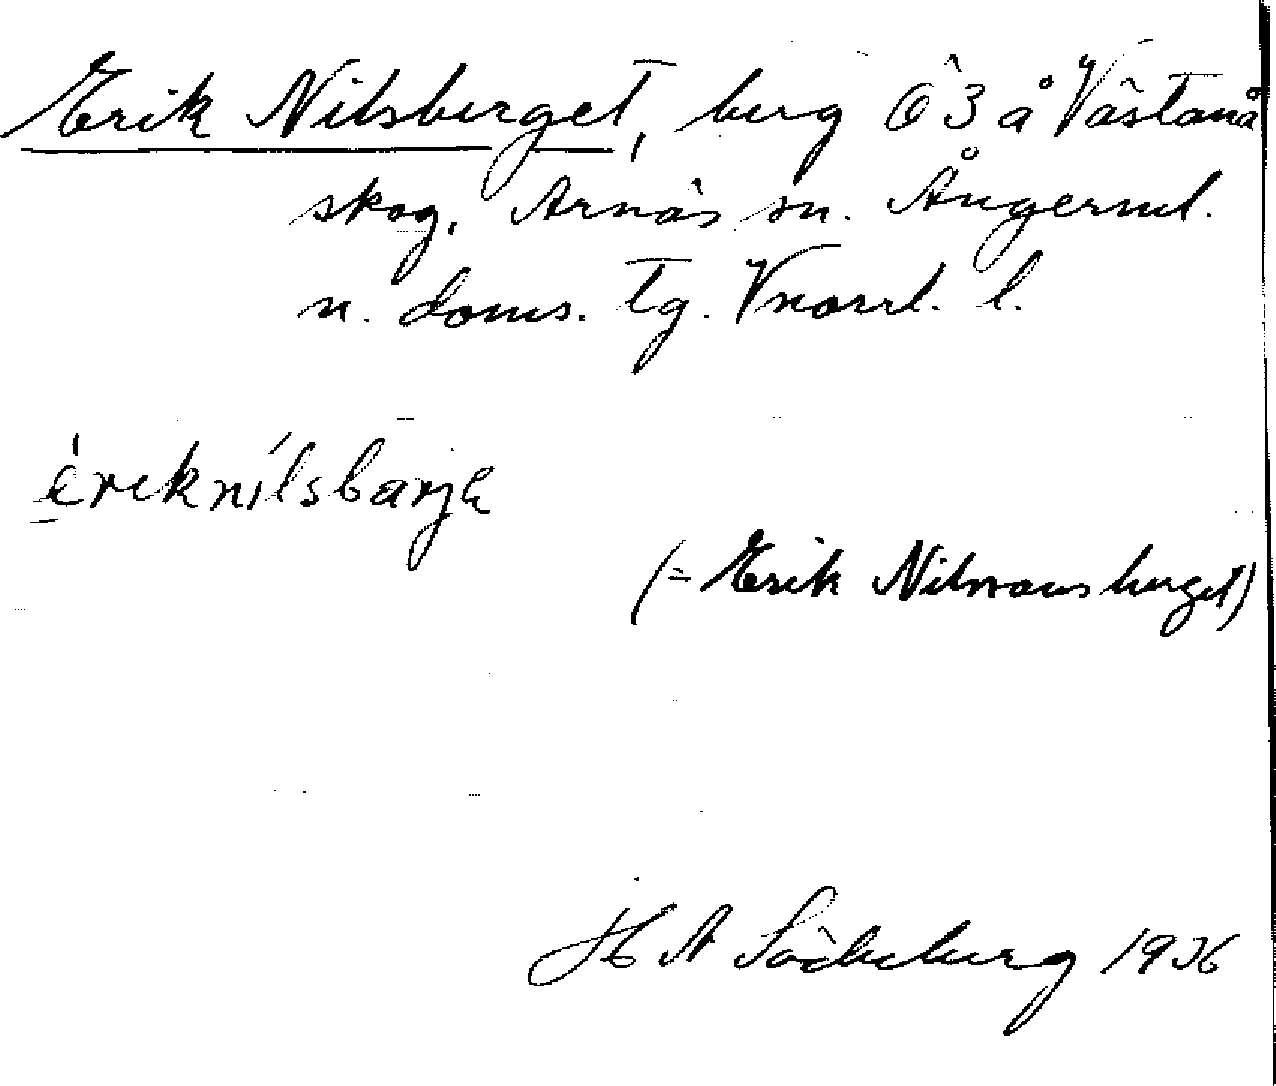 Erik Nilsberget, berg Ö 3 å Västanå
skog, Arnäs sn. Ångerml.
n. doms. tg. Vnorrl. l.
èrıknílsbarjɛ
(= Erik Nilsmansberget)
H A Söderberg 1936